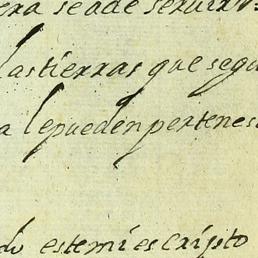 era seade seruir V.
las tierras que segu
a lepueden pertenes
do estemi escripto